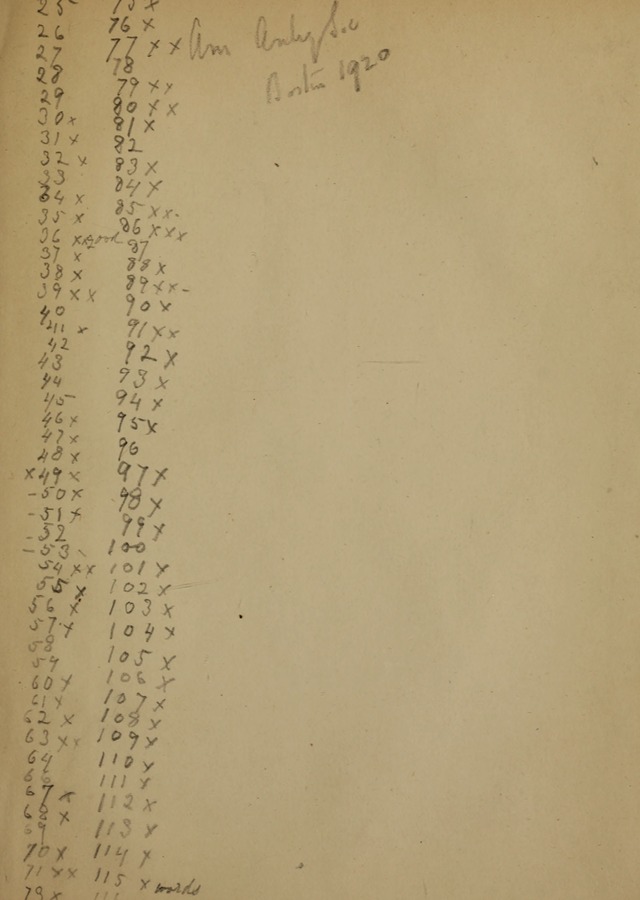 25
26
27
28
29
30 x
31 x
32 x
33
34 x
35 x
36 xx good
37 x
38 x
39 x x
40
41 x
42
43
44
45
46 x
47 x
48 x
x 49 x
- 50 x
- 51 x
- 52
- 53 -
54 xx
55 x
56 x
57 x
58
59
60 x
61 x
62 x
63 xx
64
66
67 x
68 x
69
70 x
71 xx
75 x
76 x
77 x x
78
79 xx
80 x x
81 x
82
83 x
84 x
85 xx-
86 xxx
87
88 x
89 xx-
90 x
91 xx
92 x
93 x
94 x
95 x
96
97 x
98 x
99 x
100
101 x
102 x
103 x
104 x
105 x
106 x
107 x
108 x
109 x
110 x
111 x
112 x
113 x
114 x
115 x words
Am
Boston 1920